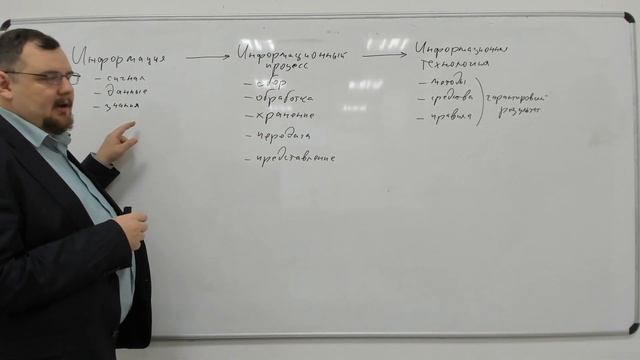 Информация
- сигнал
- данные
- знания
Информационный
процесс
- сбор
- обработка
- хранение
- передача
- представление
Информационная
технология
- методы
- средства
- правила
результат